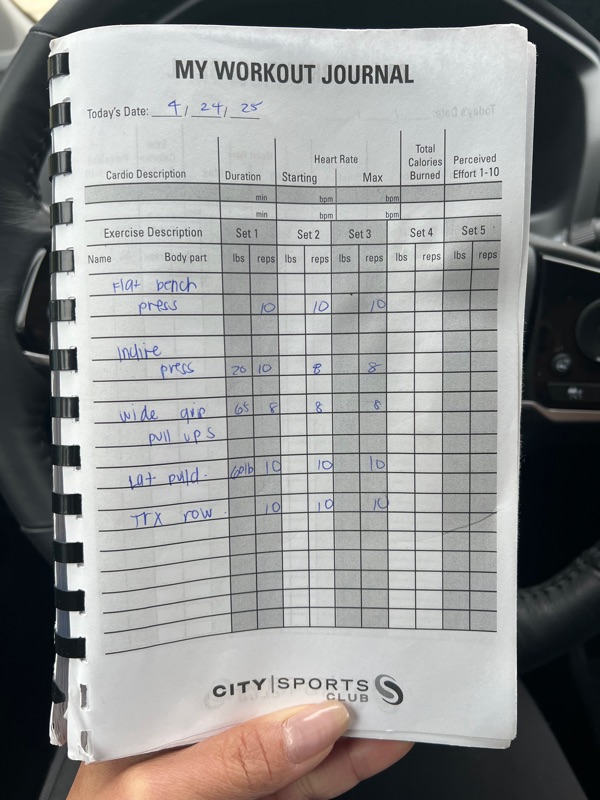 MY WORKOUT JOURNAL
Today's Date: 4/24/25
Total
Heart Rate Calories Perceived
Cardio Description Duration Starting Max Burned Effort 1-10
min bpm bpm
min bpm bpm
Exercise Description Set 1 Set 2 Set 3 Set 4 Set 5
Name Body part lbs reps lbs reps lbs reps lbs reps lbs reps
Flat bench
press 10 10 10
Incline
press 20 10 8 8
wide grip 65 8 8 8
pull ups
Lat pulld. 60lb 10 10 10
TRX row 10 10 10
CITY|SPORTS
CLUB